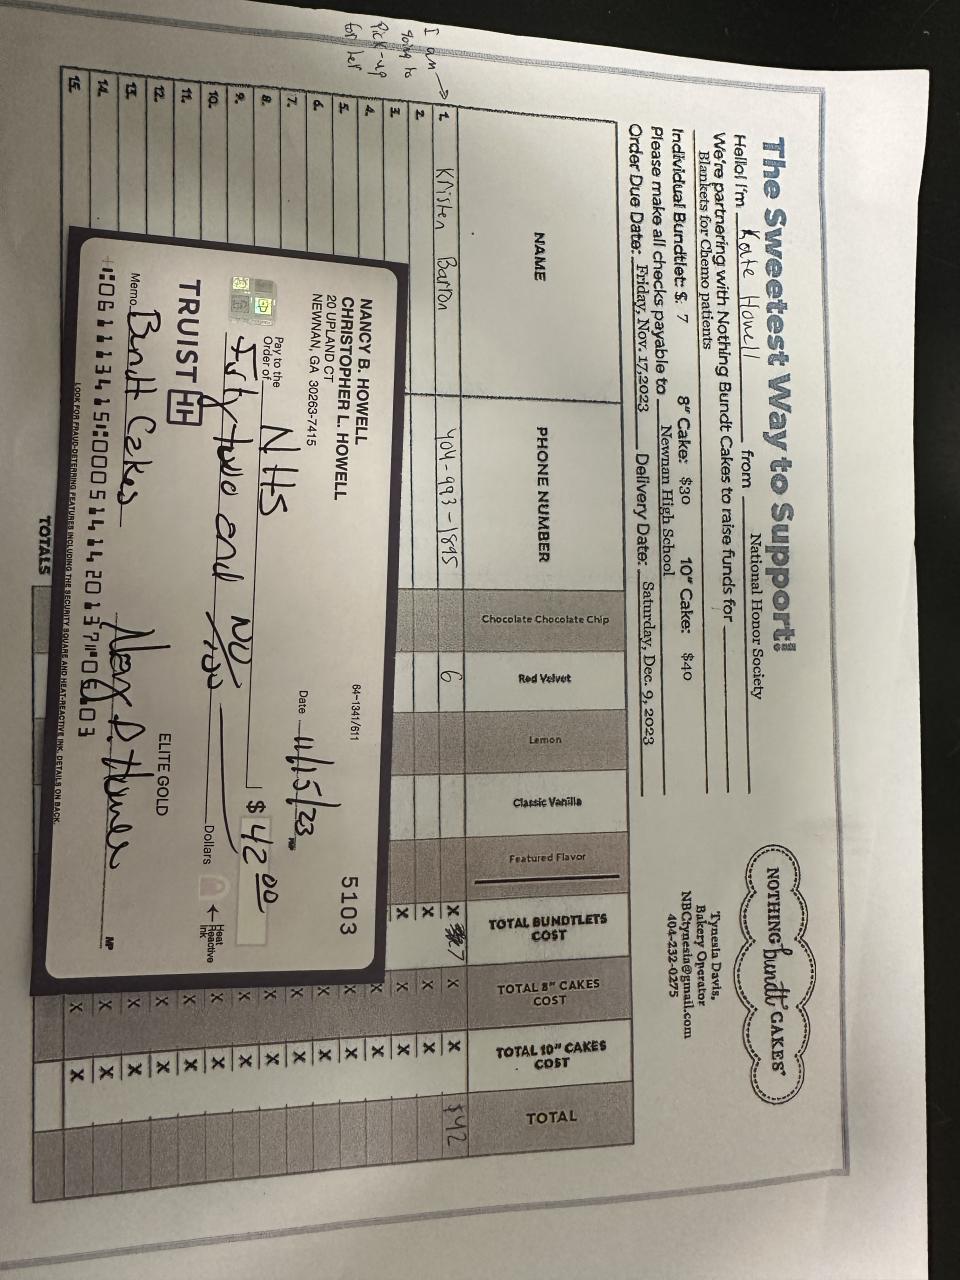 The Sweetest Way to Support!
Hello! I'm Kate Howell from National Honor Society
We're partnering with Nothing Bundt Cakes to raise funds for
Blankets for Chemo patients
Individual Bundtlet: $ 7 8" Cake: $30 10" Cake: $40
Please make all checks payable to Newnan High School
Order Due Date: Friday, Nov. 17,2023 Delivery Date: Saturday, Dec. 9, 2023
NOTHING bundt CAKES
Tynesia Davis,
Bakery Operator
NBCtynesia@gmail.com
404-232-0275
NAME PHONE NUMBER Chocolate Chocolate Chip Red Velvet Lemon Classic Vanilla Featured Flavor TOTAL BUNDTLETS COST TOTAL 8" CAKES COST TOTAL 10" CAKES COST TOTAL
I am →
going to
Pick-up
for her
1. Kristen Barron 404-993-1895 6 X 7 X X $42
2. X X X
3. X X X
4. X X
5. X X
6. X X
7. X X
8. X X
9. X X
10. X X
11. X X
12. X X
13. X X
14. X X
15. X X
TOTALS
NANCY B. HOWELL
CHRISTOPHER L. HOWELL
20 UPLAND CT
NEWNAN, GA 30263-7415
64-1341/611
5103
Date 11/15/23
Pay to the
Order of NHS $ 42.00
Forty two and NO/100 Dollars
Heat
Reactive
Ink
TRUIST
ELITE GOLD
Memo Bundt Cakes Nancy B. Howell MP
⑆061113415⑆0005141420137⑈05103
LOOK FOR FRAUD-DETERRING FEATURES INCLUDING THE SECURITY SQUARE AND HEAT-REACTIVE INK. DETAILS ON BACK.